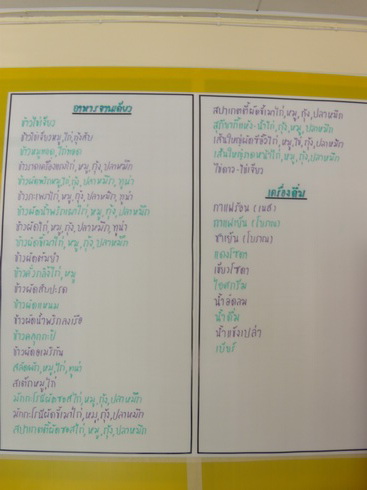 อาหารจานเดียว
ข้าวไข่เจียว
ข้าวไข่เจียวหมู,ไก่,กุ้งสับ
ข้าวหมูทอด,ไก่ทอด
ข้าวราดเครื่องแกงไก่,หมู,กุ้ง,ปลาหมึก
ข้าวผัดพริกหมู,ไก่,กุ้ง,ปลาหมึก,ทูน่า
ข้าวกะเพราไก่,หมู,กุ้ง,ปลาหมึก,ทูน่า
ข้าวผัดน้ำพริกเผาไก่,หมู,กุ้ง,ปลาหมึก
ข้าวผัดไก่,หมู,กุ้ง,ปลาหมึก,ทูน่า
ข้าวผัดขี้เมาไก่,หมู,กุ้ง,ปลาหมึก
ข้าวผัดต้มยำ
ข้าวคั่วกลิ้งไก่,หมู
ข้าวผัดสับปะรด
ข้าวผัดแหนม
ข้าวผัดน้ำพริกลงเรือ
ข้าวคลุกกะปิ
ข้าวผัดอเมริกัน
สลัดผัก,หมู,ไก่,ทูน่า
สเต็กหมู,ไก่
มักกะโรนีผัดซอสไก่,หมู,กุ้ง,ปลาหมึก
มักกะโรนีผัดขี้เมาไก่,หมู,กุ้ง,ปลาหมึก
สปาเกตตี้ผัดซอสไก่,หมู,กุ้ง,ปลาหมึก
สปาเกตตี้ผัดขี้เมาไก่,หมู,กุ้ง,ปลาหมึก
สุกียากี้แห้ง-น้ำไก่,กุ้ง,หมู,ปลาหมึก
เส้นใหญ่ผัดซีอิ๊วไก่,หมู,กุ้ง,ปลาหมึก
เส้นใหญ่ราดหน้าไก่,หมู,กุ้ง,ปลาหมึก
ไข่ดาว-ไข่เจียว
เครื่องดื่ม
กาแฟร้อน (เนส)
กาแฟเย็น (โบราณ)
ชาเย็น (โบราณ)
แดงโซดา
เขียวโซดา
ไอศกรีม
น้ำอัดลม
น้ำดื่ม
น้ำแข็งเปล่า
เบียร์